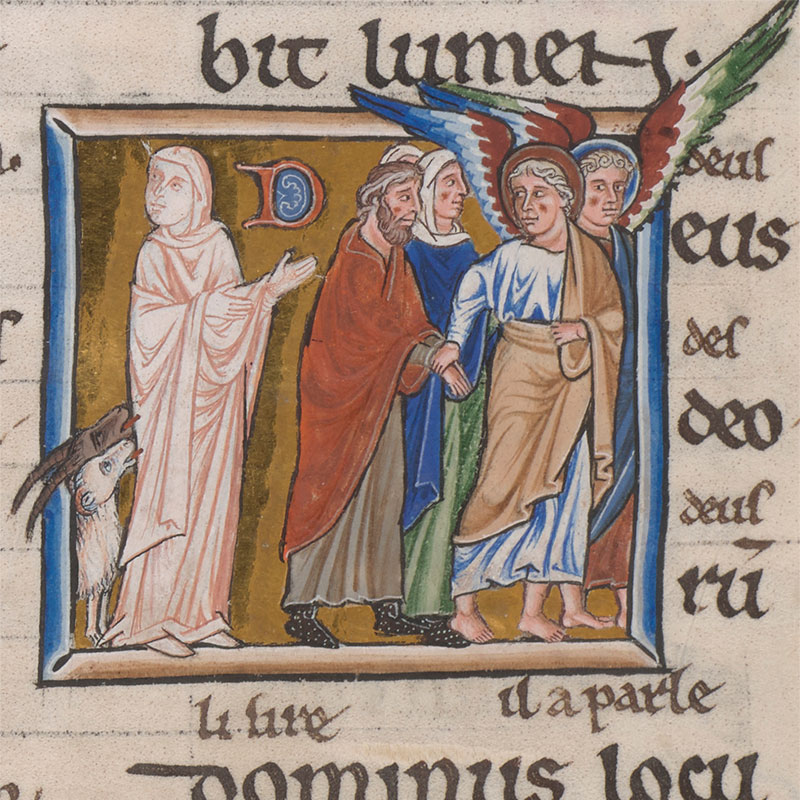 bit lumen.
D
deus
eus
des
deo
deus
rū
li sire
il a parle
dominus locu